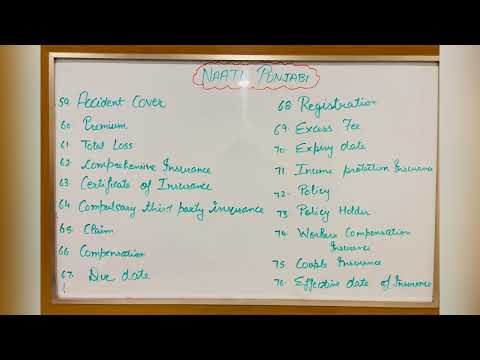 NAATI PUNJABI
59. Accident Cover
60. Premium
61. Total Loss
62. Comprehensive Insurance
63. Certificate of Insurance
64. Compulsary third party insurance
65. Claim
66. Compensation
67. Due date
68. Registration
69. Excess Fee
70. Expiry date
71. Income protection Insurance
72. Policy
73. Policy Holder
74. Workers Compensation
Insurance
75. Couple Insurance
76. Effective date of Insurance